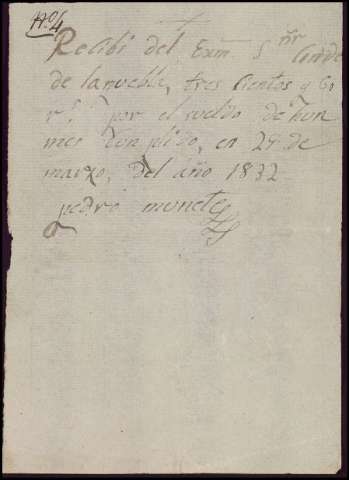 Nº 4
Recibi del Exm Sñr Conde
de la puebla, tres cientos y
rs por el sueldo de hun
mes cunplido, en 29 de
marzo, del año 1832
pedro